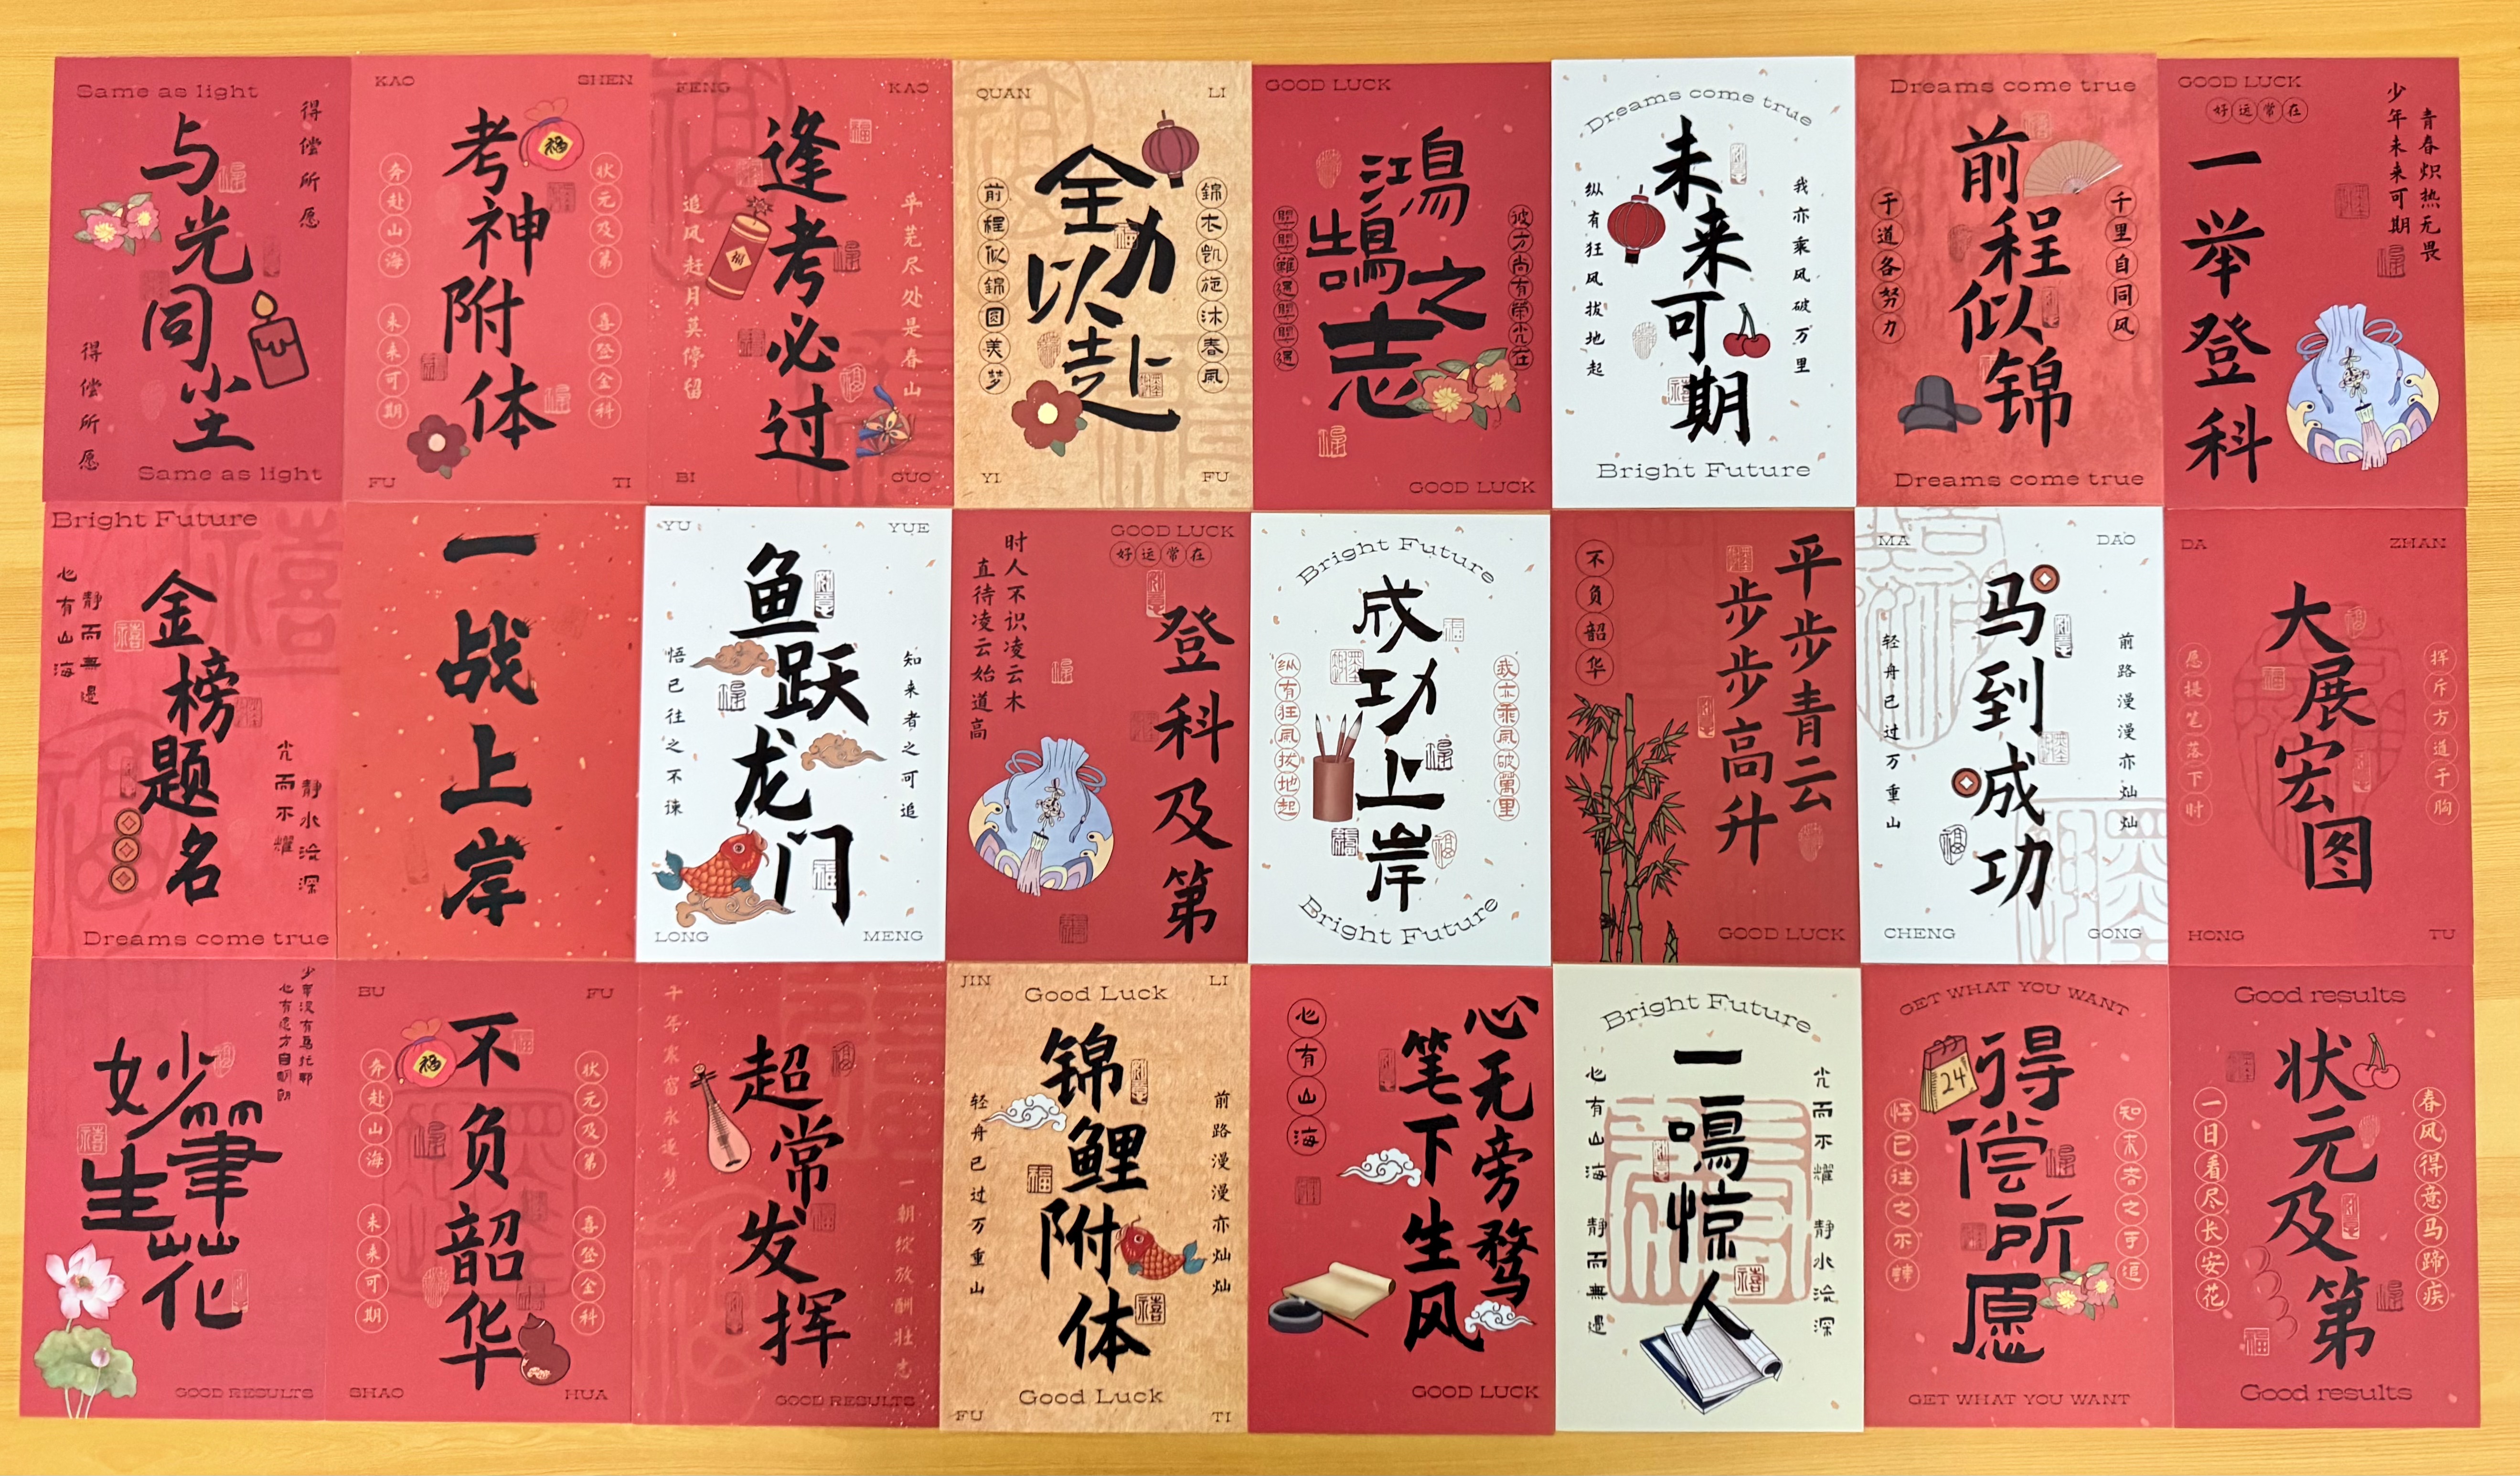 Same as light
得偿所愿
与光同尘
得偿所愿
Same as light
KAO SHEN
考神附体
状元及第 喜登金科
奔赴山海 未来可期
FU TI
FENG KAO
逢考必过
平芜尽处是春山
追风赶月莫停留
BI GUO
QUAN LI
全力以赴
錦衣凯旋沐春風
前程似錦圆美梦
YI FU
GOOD LUCK
鴻鵠之志
彼方尚有荣光在
GOOD LUCK
Dreams come true
未来可期
我亦乘风破万里
纵有狂风拔地起
Bright Future
Dreams come true
前程似锦
千里自同风
于道各努力
Dreams come true
GOOD LUCK
好运常在
青春炽热无畏
少年未来可期
一举登科
Bright Future
心有山海
静而無邊
金榜题名
光而不耀
静水流深
Dreams come true
一战上岸
YU YUE
鱼跃龙门
知来者之可追
悟已往之不谏
LONG MENG
GOOD LUCK
好运常在
时人不识凌云木
直待凌云始道高
登科及第
Bright Future
成功上岸
我亦乘風破萬里
纵有狂風拔地起
Bright Future
不负韶华
平步青云
步步高升
GOOD LUCK
MA DAO
马到成功
前路漫漫亦灿灿
轻舟已过万重山
CHENG GONG
DA ZHAN
大展宏图
挥斥方遒于胸
愿提笔落下时
HONG TU
少年没有乌托邦
心有远方自明朗
妙筆生花
GOOD RESULTS
BU FU
不负韶华
状元及第 喜登金科
奔赴山海 未来可期
SHAO HUA
超常发挥
十年寒窗永逐梦
一朝绽放酬壮志
GOOD RESULTS
JIN LI
Good Luck
锦鲤附体
前路漫漫亦灿灿
轻舟已过万重山
Good Luck
FU TI
心有山海
心无旁骛
笔下生风
GOOD LUCK
Bright Future
一鳴惊人
光而不耀 静水流深
心有山海 静而無邊
GET WHAT YOU WANT
24
得偿所愿
知来者之可追
悟已往之不谏
GET WHAT YOU WANT
Good results
状元及第
春风得意马蹄疾
一日看尽长安花
Good results